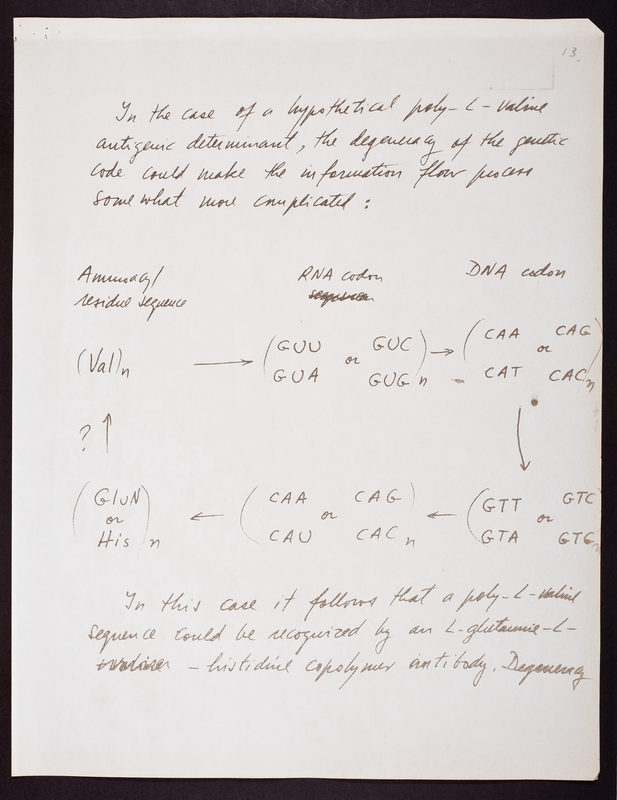 13.
In the case of a hypothetical poly-L-valine
antigenic determinant, the degeneracy of the genetic
code could make the information flow process
somewhat more complicated:
Aminoacyl RNA codon DNA codon
residue sequence sequence
(Val)n → (GUU or GUC → (CAA or CAG
GUA GUG)n CAT CAC)n
? ↑ ↓
(GluN ← (CAA or CAG ← (GTT or GTC
or CAU CAC)n GTA GTG)n
His)n
In this case it follows that a poly-L-valine
sequence could be recognized by an L-glutamine-L-
-histidine copolymer antibody. Degeneracy